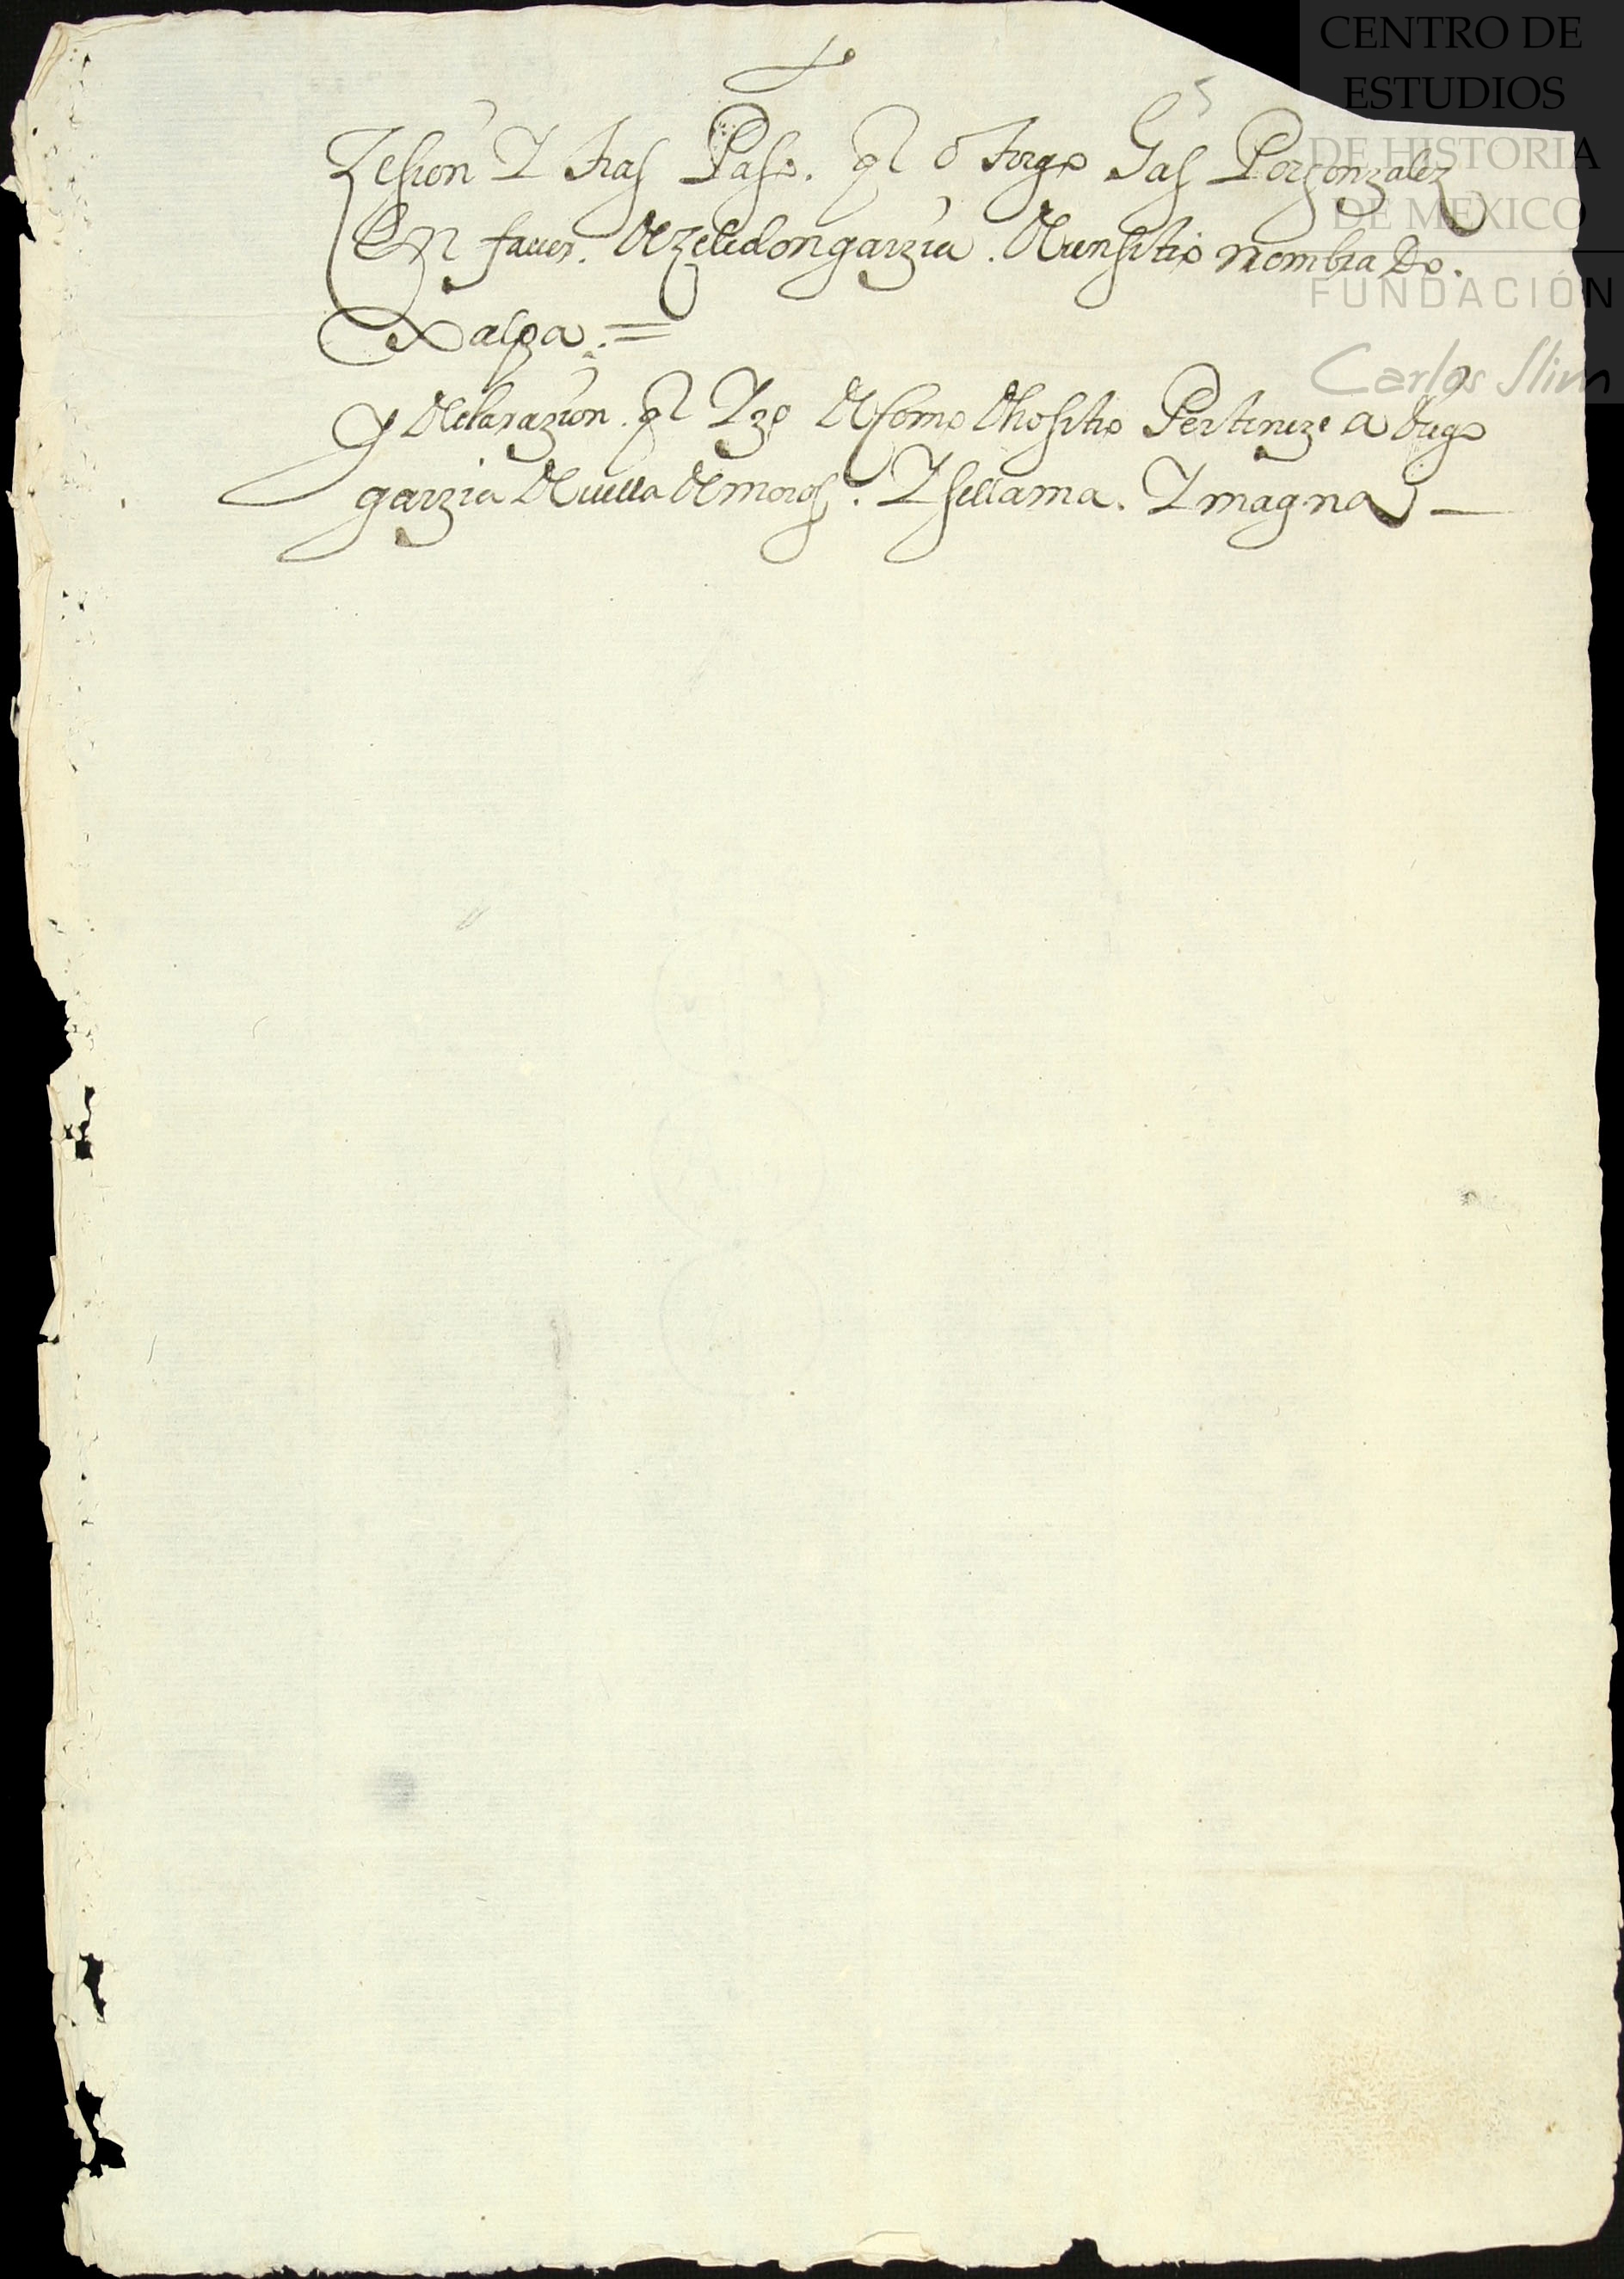 CENTRO DE
ESTUDIOS
DE HISTORIA
DE MÉXICO
FUNDACIÓN
Carlos Slim
5
Zesion Y tras Paso. q̃ o torgo Gas Por gonzalez
En fauor. de zeledon garzia. de un sitio nombra do.
Xalpa. =
Y declarazion. q̃ Yzo de como dho sitio Pertineze a diego
garzia de uilla de moros. Y se llama. Ymagna